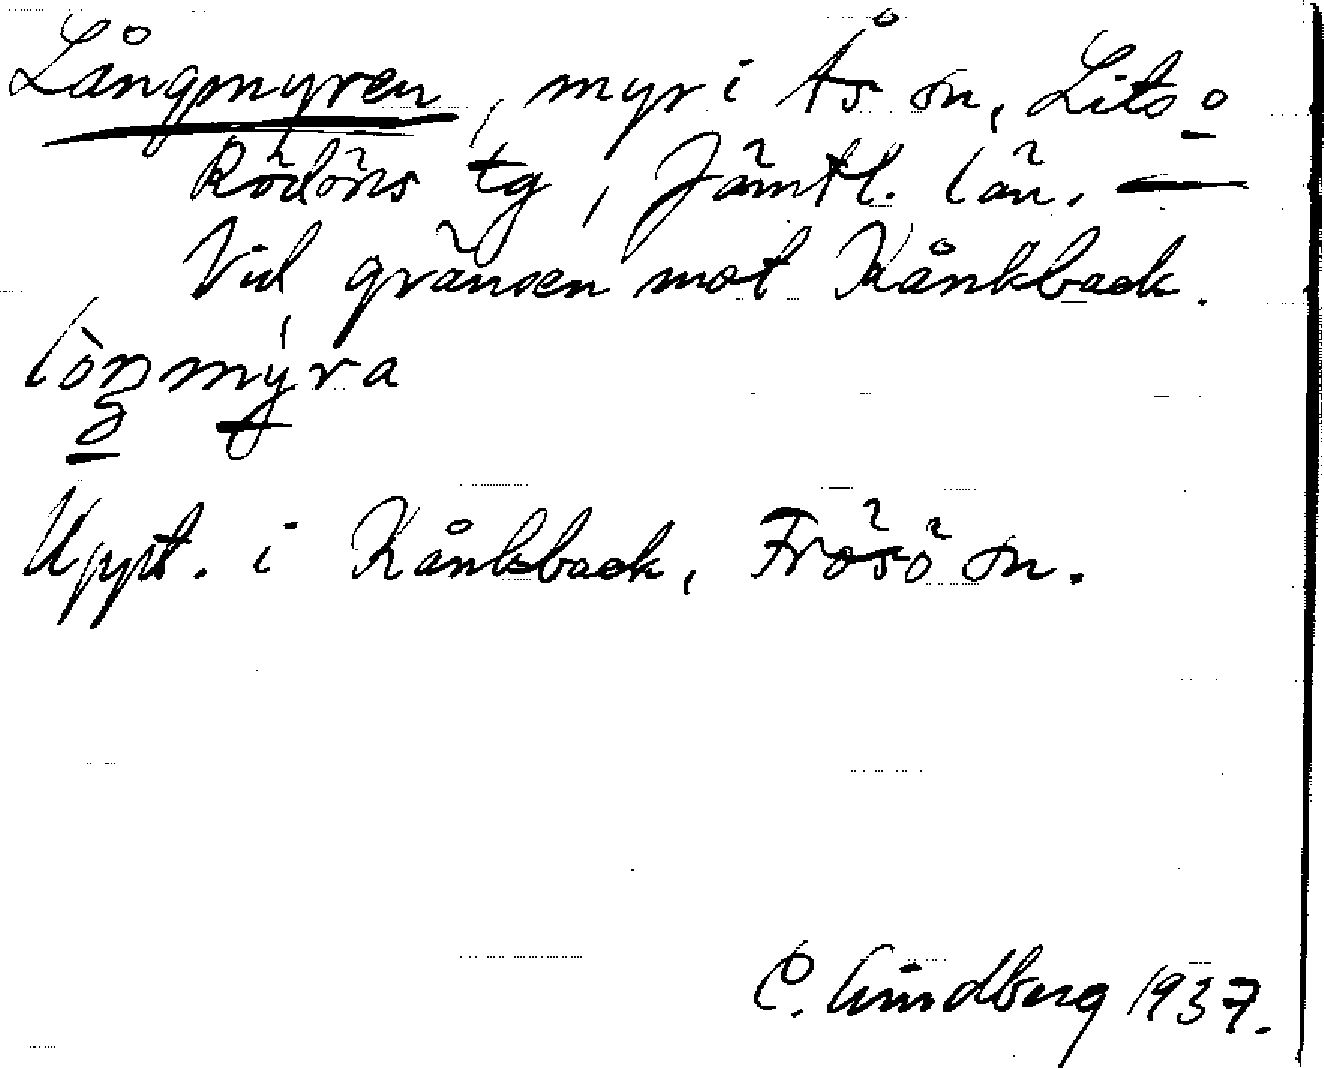 Långmyren, myr i Ås sn, Lits o
Rödöns tg, Jämtl. län. —
Vid gränsen mot Kånkback.
Uppt. i Kånkback, Frösö sn.
C. Lindberg 1937.